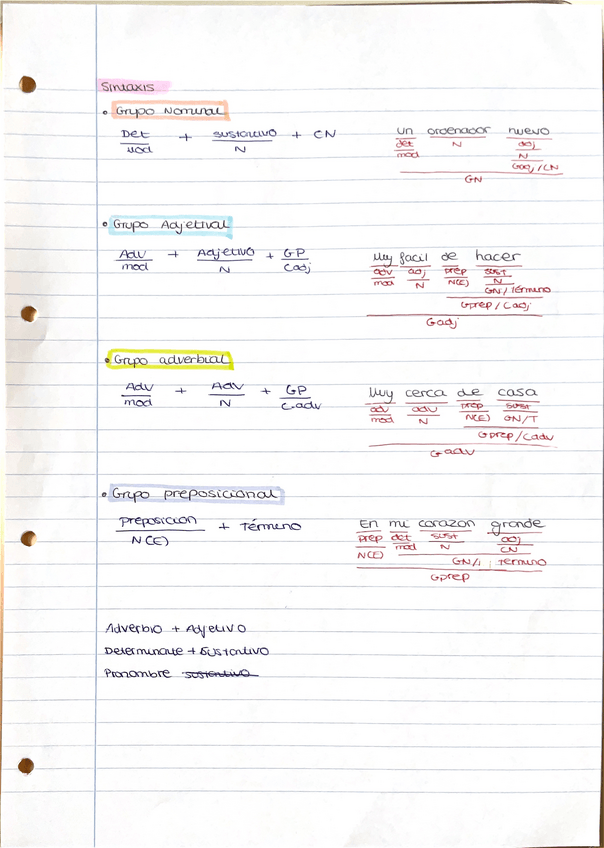 Sintaxis
• Grupo Nominal
Det + sustantivo + CN un ordenador nuevo
Mod N det N adj
mod N
Gadj/CN
GN
• Grupo Adjetival
Adv + Adjetivo + GP Muy facil de hacer
mod N Cadj adv adj prep sust
mod N N(E) N
GN/término
Gprep/Cadj
Gadj
• Grupo adverbial
Adv + Adv + GP Muy cerca de casa
mod N C.adv adv adv prep sust
mod N N(E) GN/T
Gprep/Cadv
Gadv
• Grupo preposicional
Preposicion + Término En mi corazon grande
N(E) prep det sust adj
N(E) mod N CN
GN/ Termino
Gprep
Adverbio + Adjetivo
Determinante + Sustantivo
Pronombre sustantivo